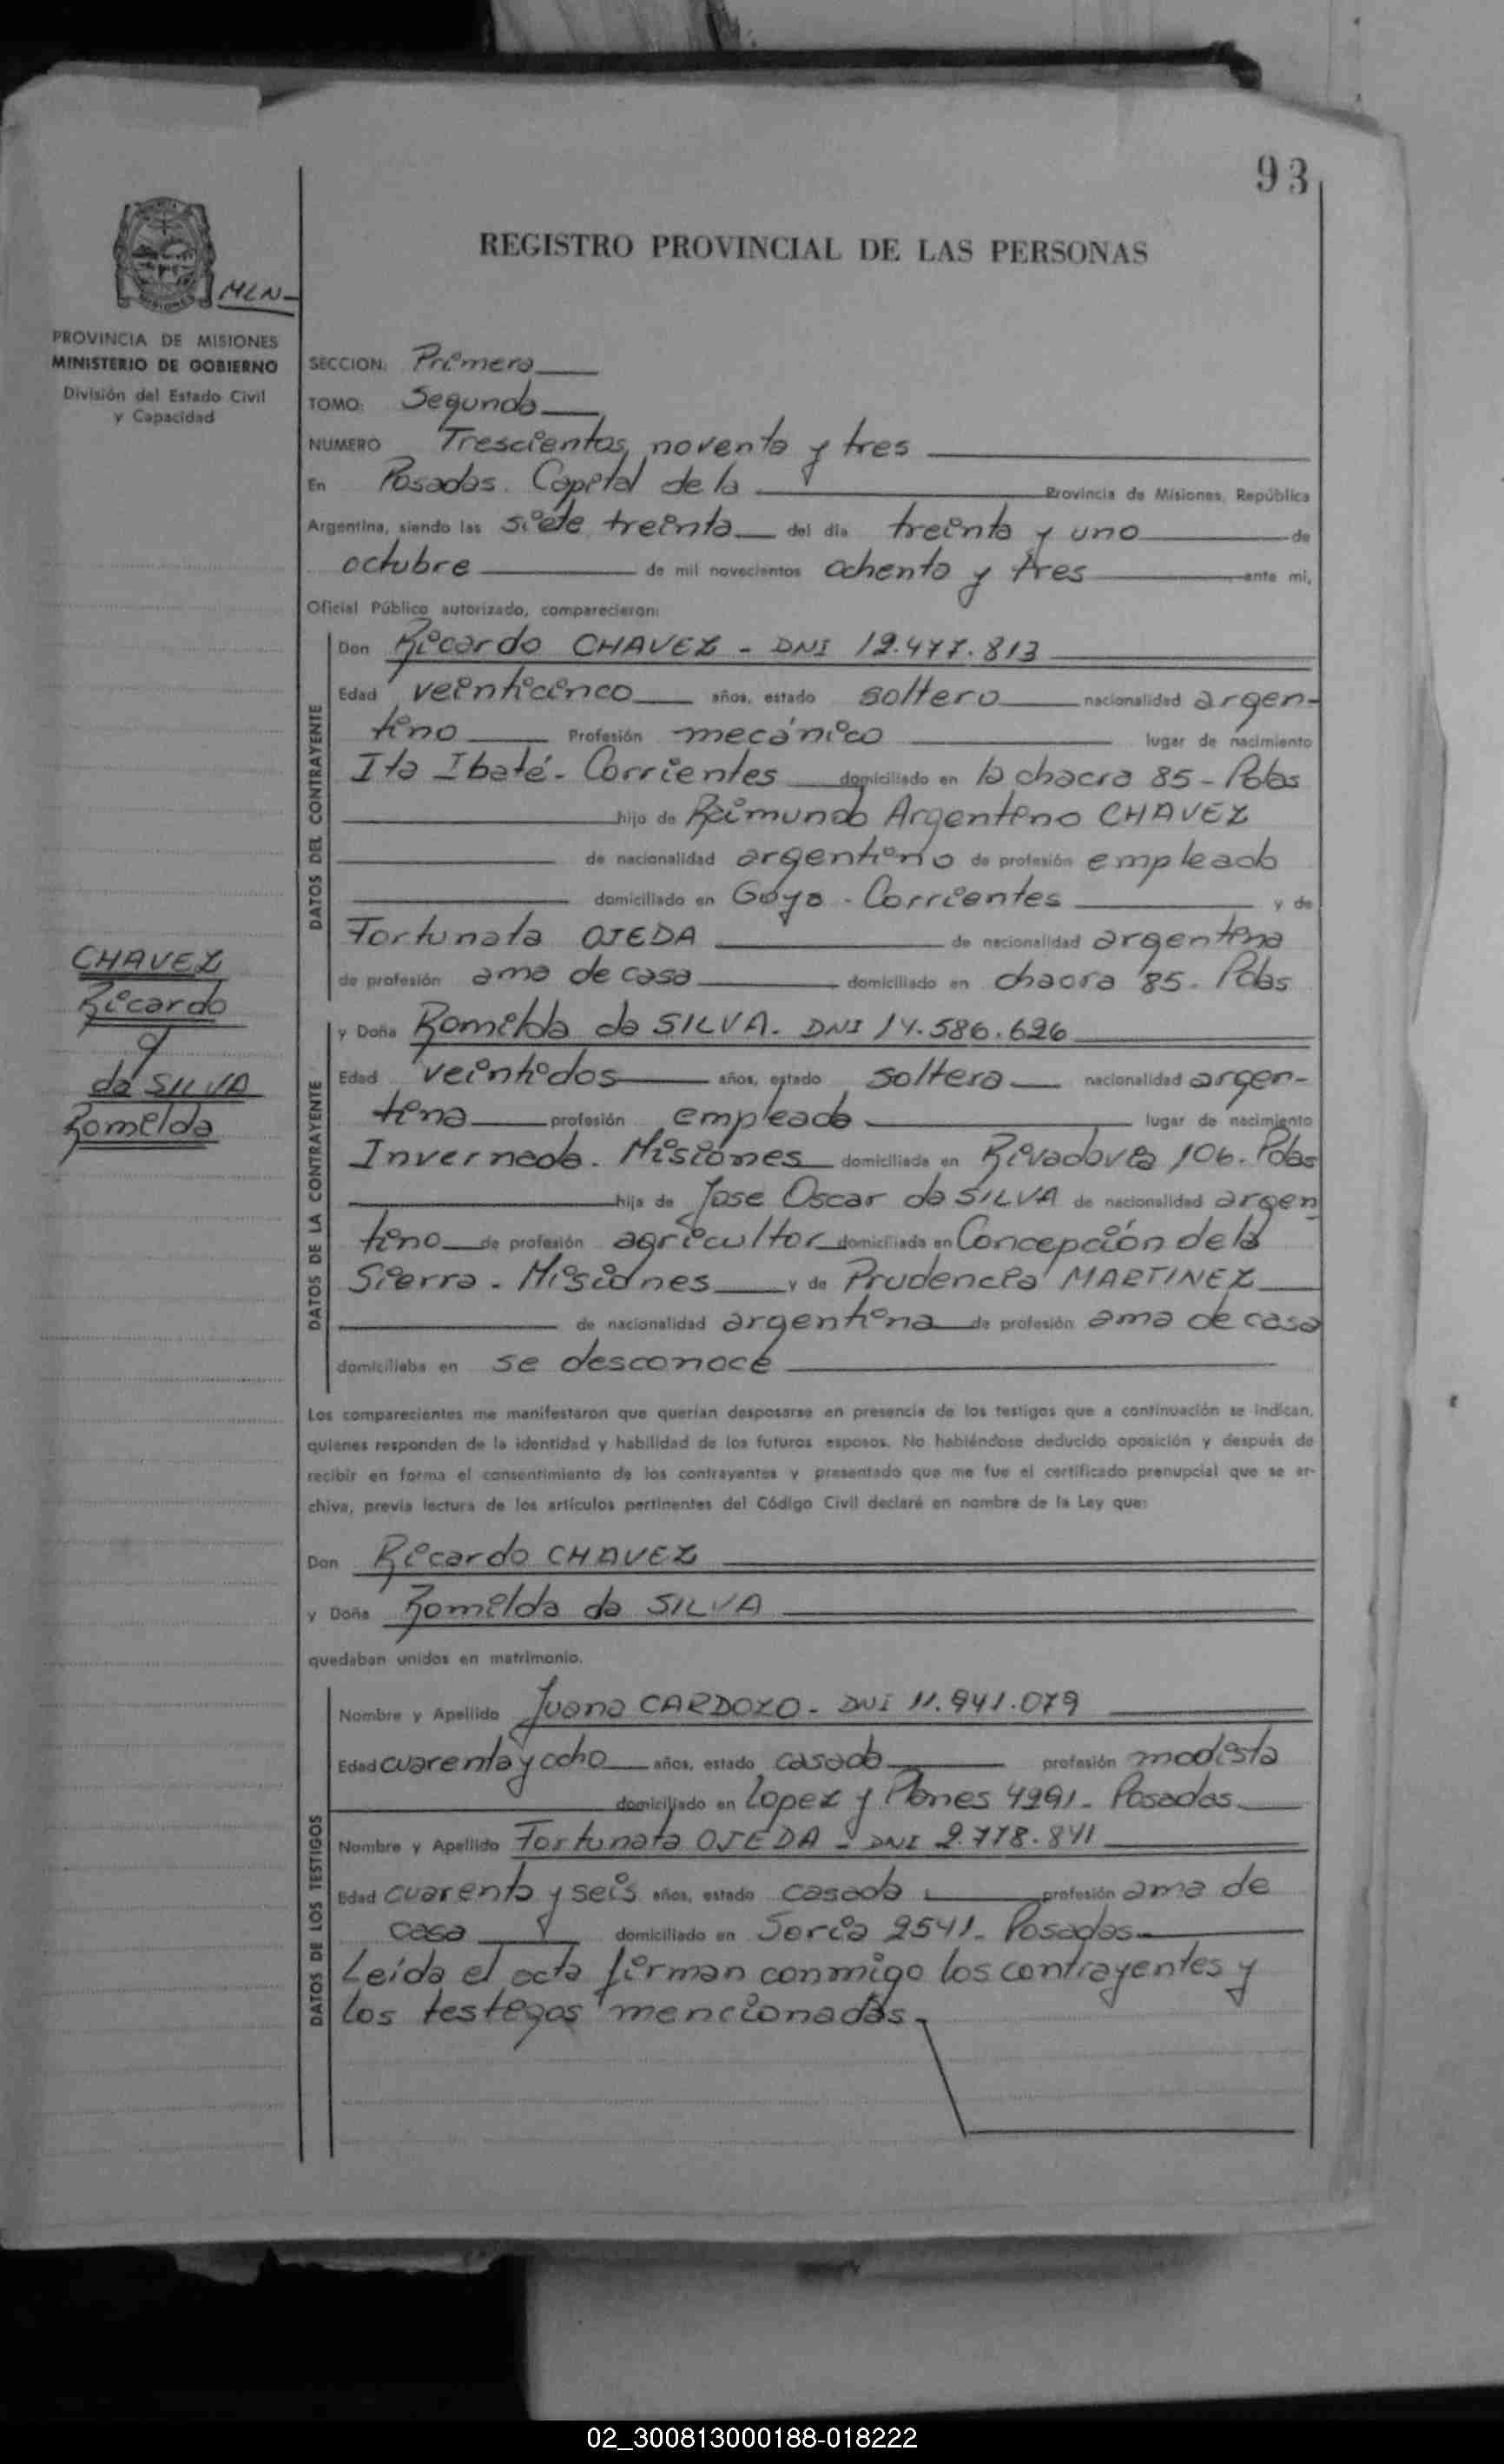 93
REGISTRO PROVINCIAL DE LAS PERSONAS
MLN-
PROVINCIA DE MISIONES
MINISTERIO DE GOBIERNO
División del Estado Civil
y Capacidad
SECCION: Primera
TOMO: Segundo
NUMERO Trescientos noventa y tres
En Posadas. Capital de la Provincia de Misiones, República
Argentina, siendo las siete treinta del día treinta y uno de
octubre de mil novecientos ochenta y tres ante mi,
Oficial Público autorizado, comparecieron:
DATOS DEL CONTRAYENTE
Don Ricardo CHAVEZ - DNI 12.477.813
Edad veinticinco años, estado soltero nacionalidad argen-
tino Profesión mecánico lugar de nacimiento
Ita Ibaté - Corrientes domiciliado en la chacra 85 - Pdas
hijo de Raimundo Argentino CHAVEZ
de nacionalidad argentino de profesión empleado
domiciliado en Goya - Corrientes y de
Fortunata OJEDA de nacionalidad argentina
de profesión ama de casa domiciliado en chacra 85 - Pdas
CHAVEZ
Ricardo
y
da SILVA
Romelda
DATOS DE LA CONTRAYENTE
y Doña Romilda da SILVA - DNI 14.586.626
Edad veintidos años, estado soltera nacionalidad argen-
tina profesión empleada lugar de nacimiento
Invernada. Misiones domiciliada en Rivadavia 106. Pdas
hija de Jose Oscar da SILVA de nacionalidad argen
tino de profesión agricultor domiciliada en Concepción de la
Sierra - Misiones y de Prudencia MARTINEZ
de nacionalidad argentina de profesión ama de casa
domiciliaba en se desconoce
Los comparecientes me manifestaron que querían desposarse en presencia de los testigos que a continuación se indican,
quienes responden de la identidad y habilidad de los futuros esposos. No habiéndose deducido oposición y después de
recibir en forma el consentimiento de los contrayentes y presentado que me fue el certificado prenupcial que se ar-
chiva, previa lectura de los artículos pertinentes del Código Civil declaré en nombre de la Ley que:
Don Ricardo CHAVEZ
y Doña Romilda da SILVA
quedaban unidos en matrimonio.
DATOS DE LOS TESTIGOS
Nombre y Apellido Juana CARDOZO - DNI 11.941.079
Edad cuarenta y ocho años, estado casada profesión modista
domiciliado en Lopez y Planes 4291 - Posadas
Nombre y Apellido Fortunata OJEDA - DNI 2.778.841
Edad cuarenta y seis años, estado casada profesión ama de
casa domiciliado en Soria 2541 - Posadas
Leida el acta firman conmigo los contrayentes y
los testigos mencionados.
02_300813000188-018222